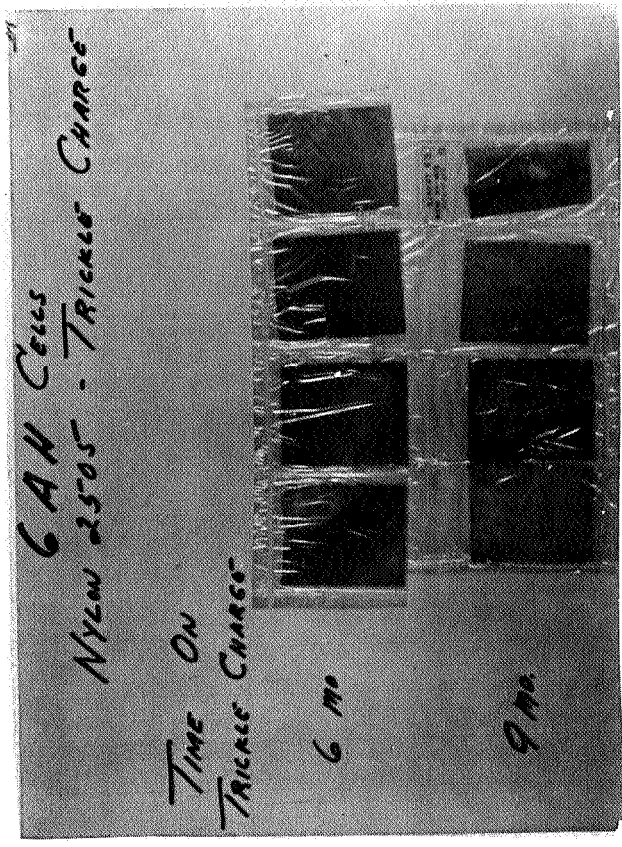 6 AH CELLS
NYLON 2505 - TRICKLE CHARGE
TIME ON
TRICKLE CHARGE
6 MO
9 MO.